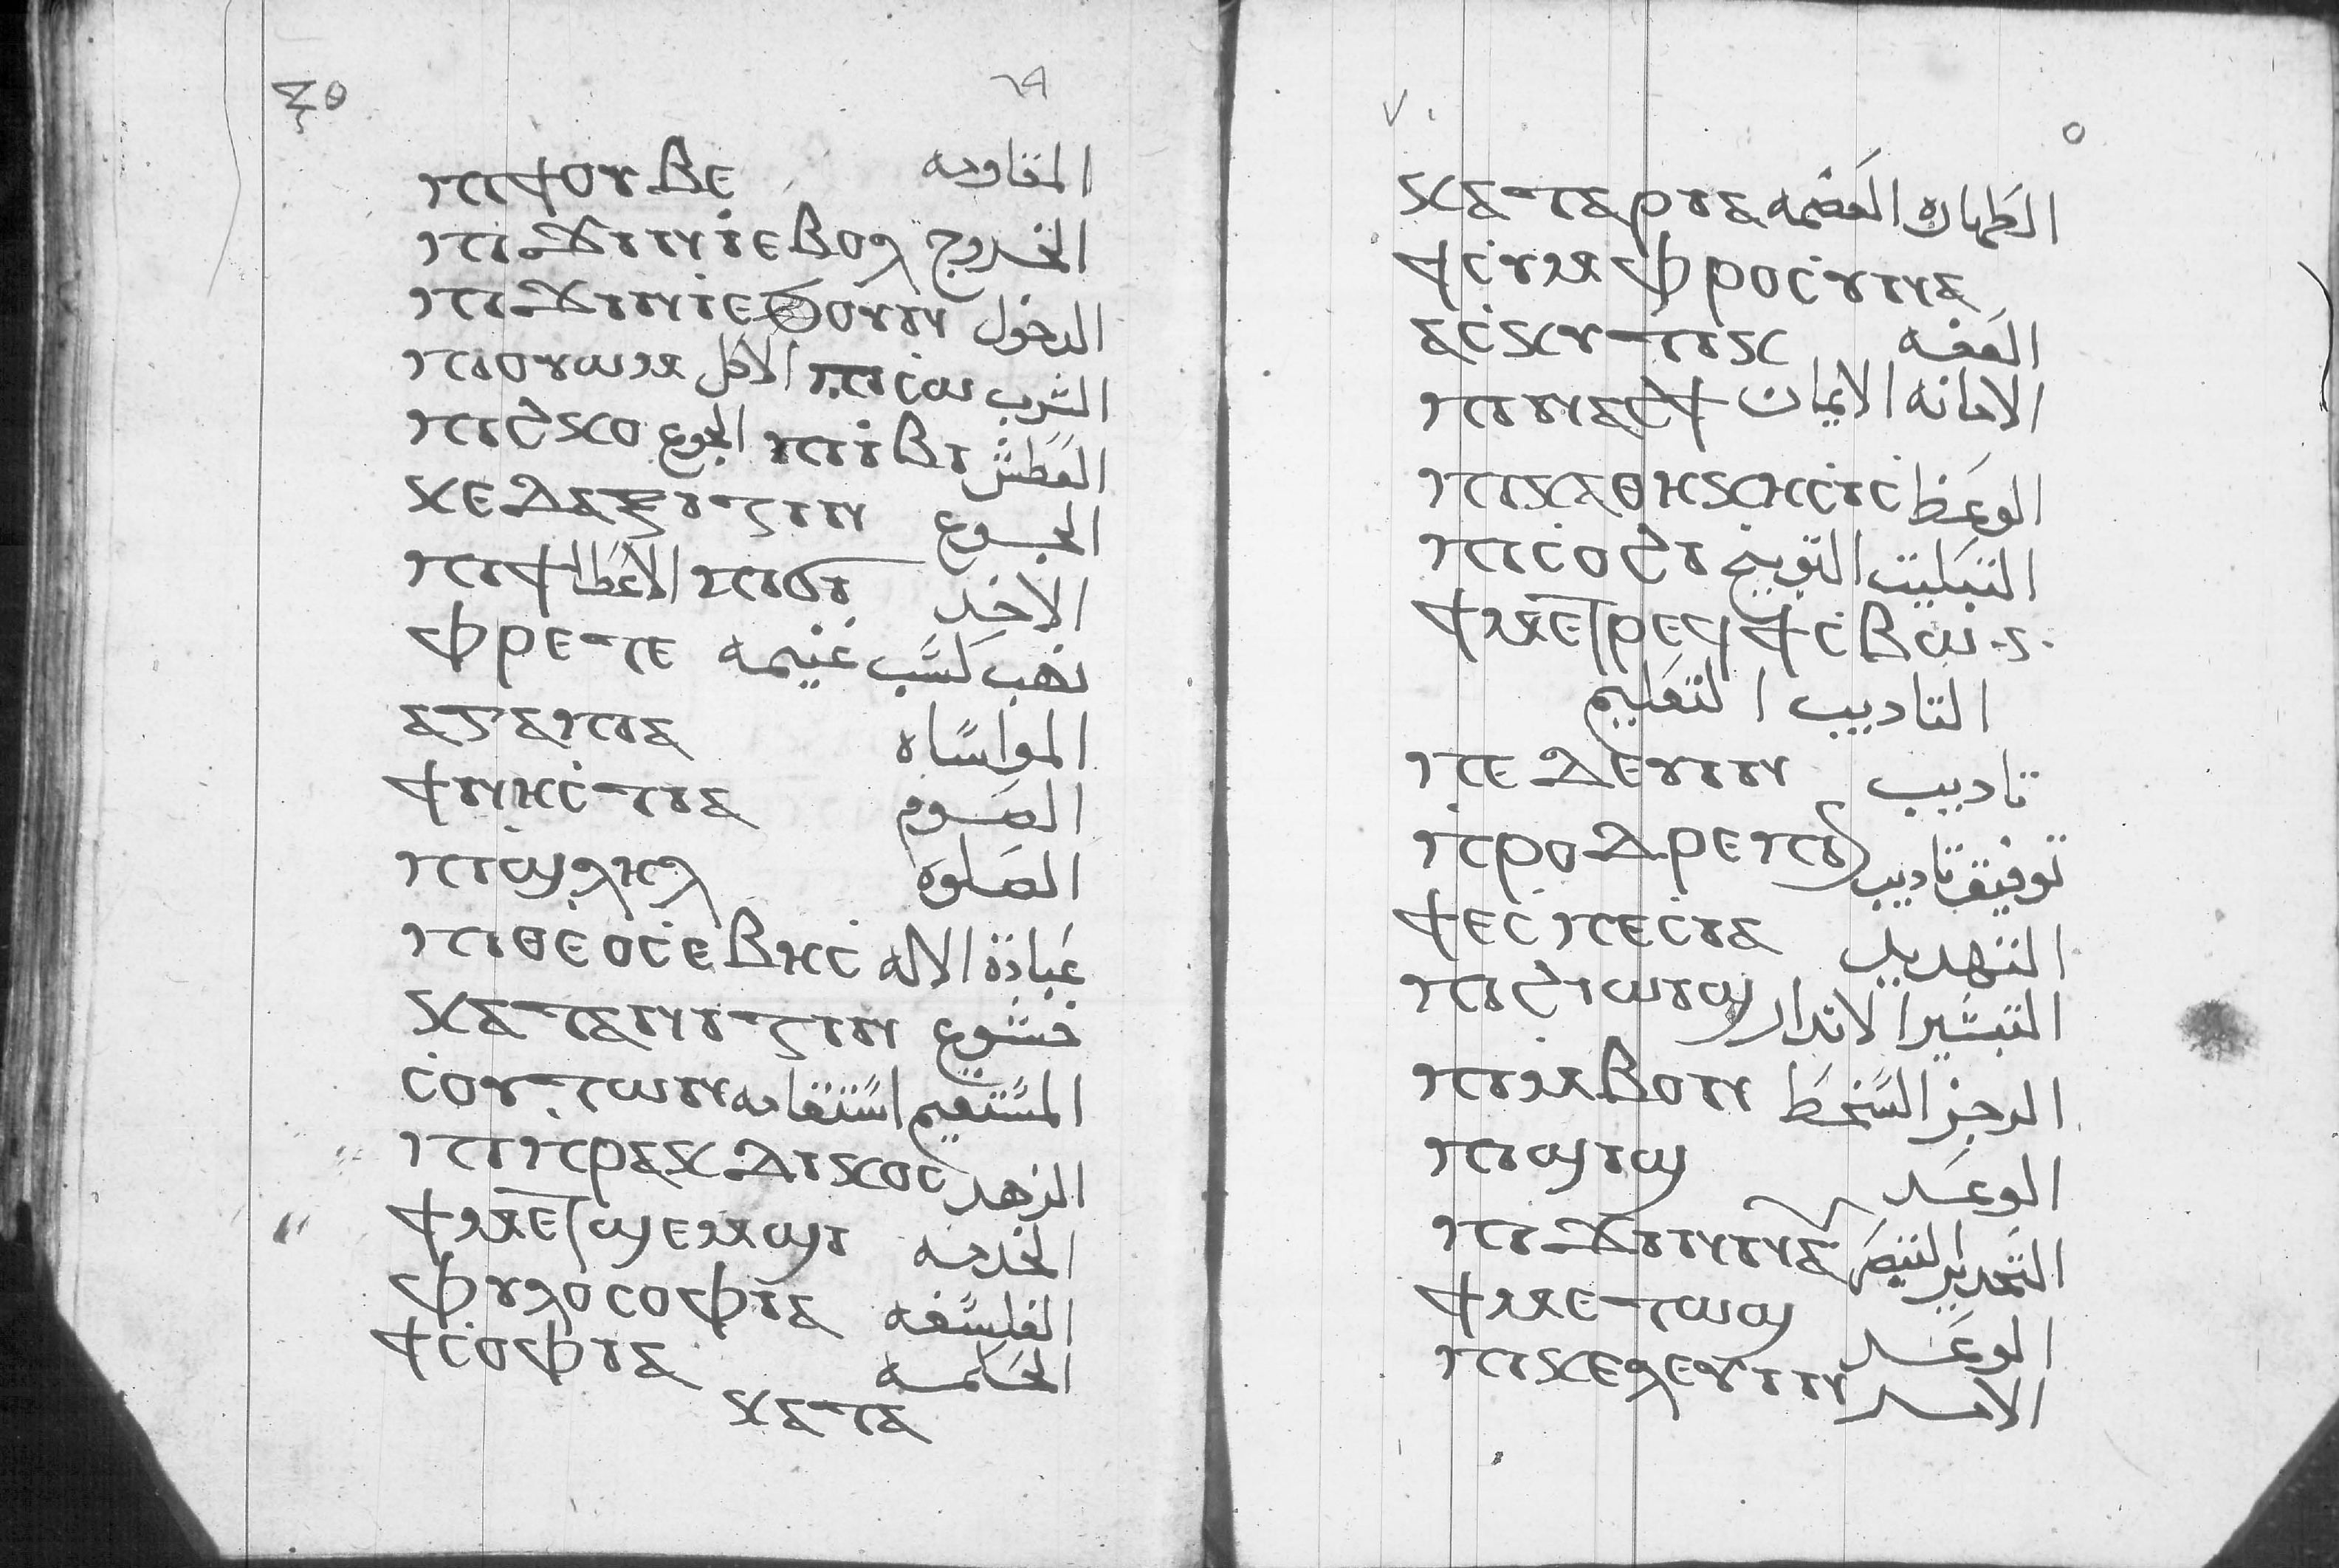 ⲝⲑ ٦٩
ⲡⲓϯⲟⲩⲃⲉ المقاومه
ⲡⲓϫⲓⲛⲓⲉⲃⲟⲗ الخروج
ⲡⲓϫⲓⲛⲓⲉϧⲟⲩⲛ الدخول
ⲡⲓⲟⲩⲱⲙ الاكل ⲡⲓⲥⲱ الشرب
ⲡⲓϩⲕⲟ الجوع ⲡⲓⲓⲃⲓ العطش
ⲕⲉⲇⲁⲝⲓⲧⲓⲛ الجوع
ⲡⲓϯ الاعطا ⲡⲓϭⲓ الاخد
ⲫⲣⲉⲧⲉ نهب كسب غنيمه
ⲁⲅⲁⲡⲓⲁ المواساه
ϯⲛⲏⲥⲧⲓⲁ الصوم
ⲡⲓϣⲗⲏⲗ الصلوة
ⲡⲓⲑⲉⲟⲥⲉⲃⲏⲥ عبادة الاله
ⲕⲁⲧⲁⲛⲓⲧⲓⲛ خشوع
ⲥⲟⲩⲧⲱⲛ المستقيم استقامه
ⲡⲓⲡⲣⲁⲕⲇⲓⲕⲟⲥ الزهد
ϯⲙⲉⲧϣⲉⲙϣⲓ الخدمه
ⲫⲩⲗⲟⲥⲟⲫⲓⲁ الفلسفه
ϯⲥⲟⲫⲓⲁ الحكمه
ⲕⲁⲧⲁ
٧٠ ⲟ
ⲕⲁⲧⲁⲣⲓⲁ الطهاره العصمه
ϯⲥⲩⲙⲫⲣⲟⲥⲩⲛⲁ
ⲁⲥⲕⲩⲧⲓⲕ العفه
ⲡⲓⲛⲁϩϯ الامانه الايمان
ⲡⲓⲕⲁⲑⲏⲕⲏⲥⲓⲥ الوعظ
ⲡⲓⲥⲟϩⲓ التبكيت التوبيخ
ϯⲙⲉⲧⲣⲉϥϯⲥⲃⲱ
التاديب التعليم
ⲡⲉⲇⲉⲩⲓⲛ تاديب
ⲡⲣⲟⲇⲣⲉⲡⲓⲛ توفيق تاديب
ϯⲉⲥⲡⲉⲥⲓⲁ التهديد
ⲡⲓϩⲓⲱⲓϣ التبشير الاندار
ⲡⲓⲙⲃⲟⲛ الرجز السخط
ⲡⲓϣⲓϣ الوعد
ⲡⲓϫⲓⲛⲛⲁ
ϯⲙⲉⲧⲱϣ الوعد
ⲡⲓⲕⲉⲗⲉⲩⲓⲛ الامر